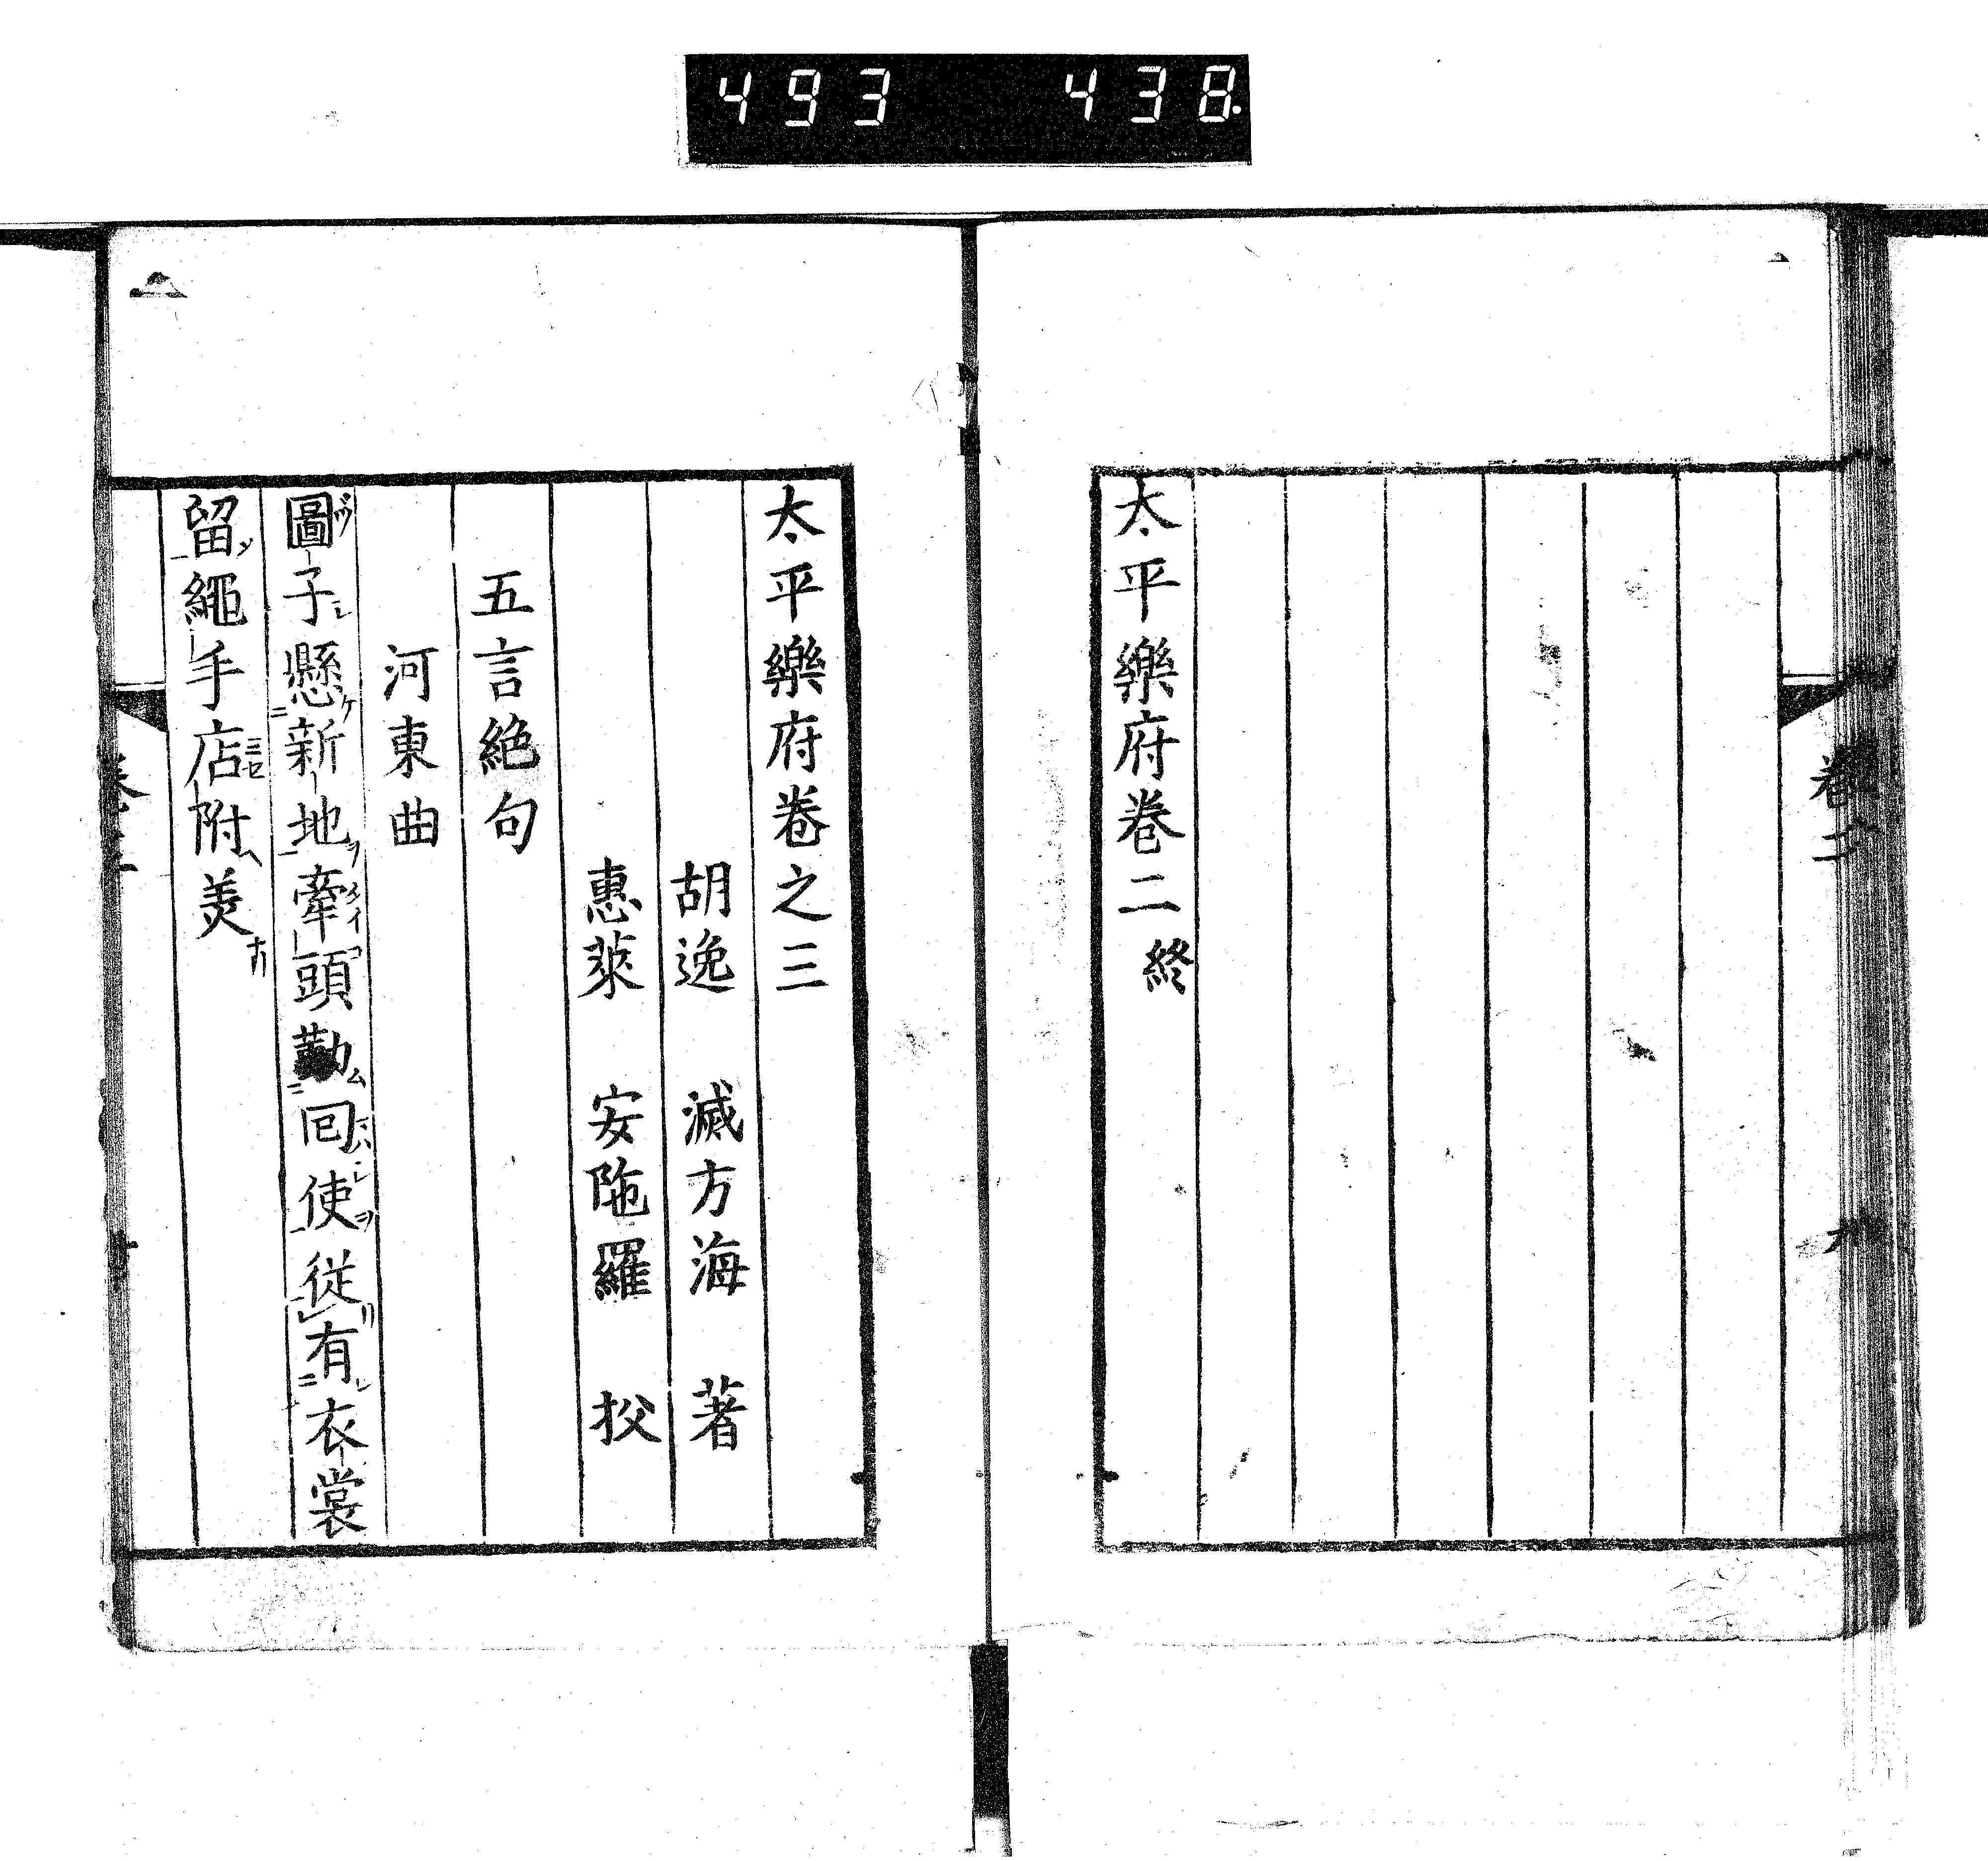 493 438.
太平樂府卷二終
卷二
太平樂府卷之三
胡逸 滅方海 著
惠萊 安陁羅 挍
五言絶句
河東曲
圖子懸新地牽頭勤回使從有衣裳
留繩手店附羙